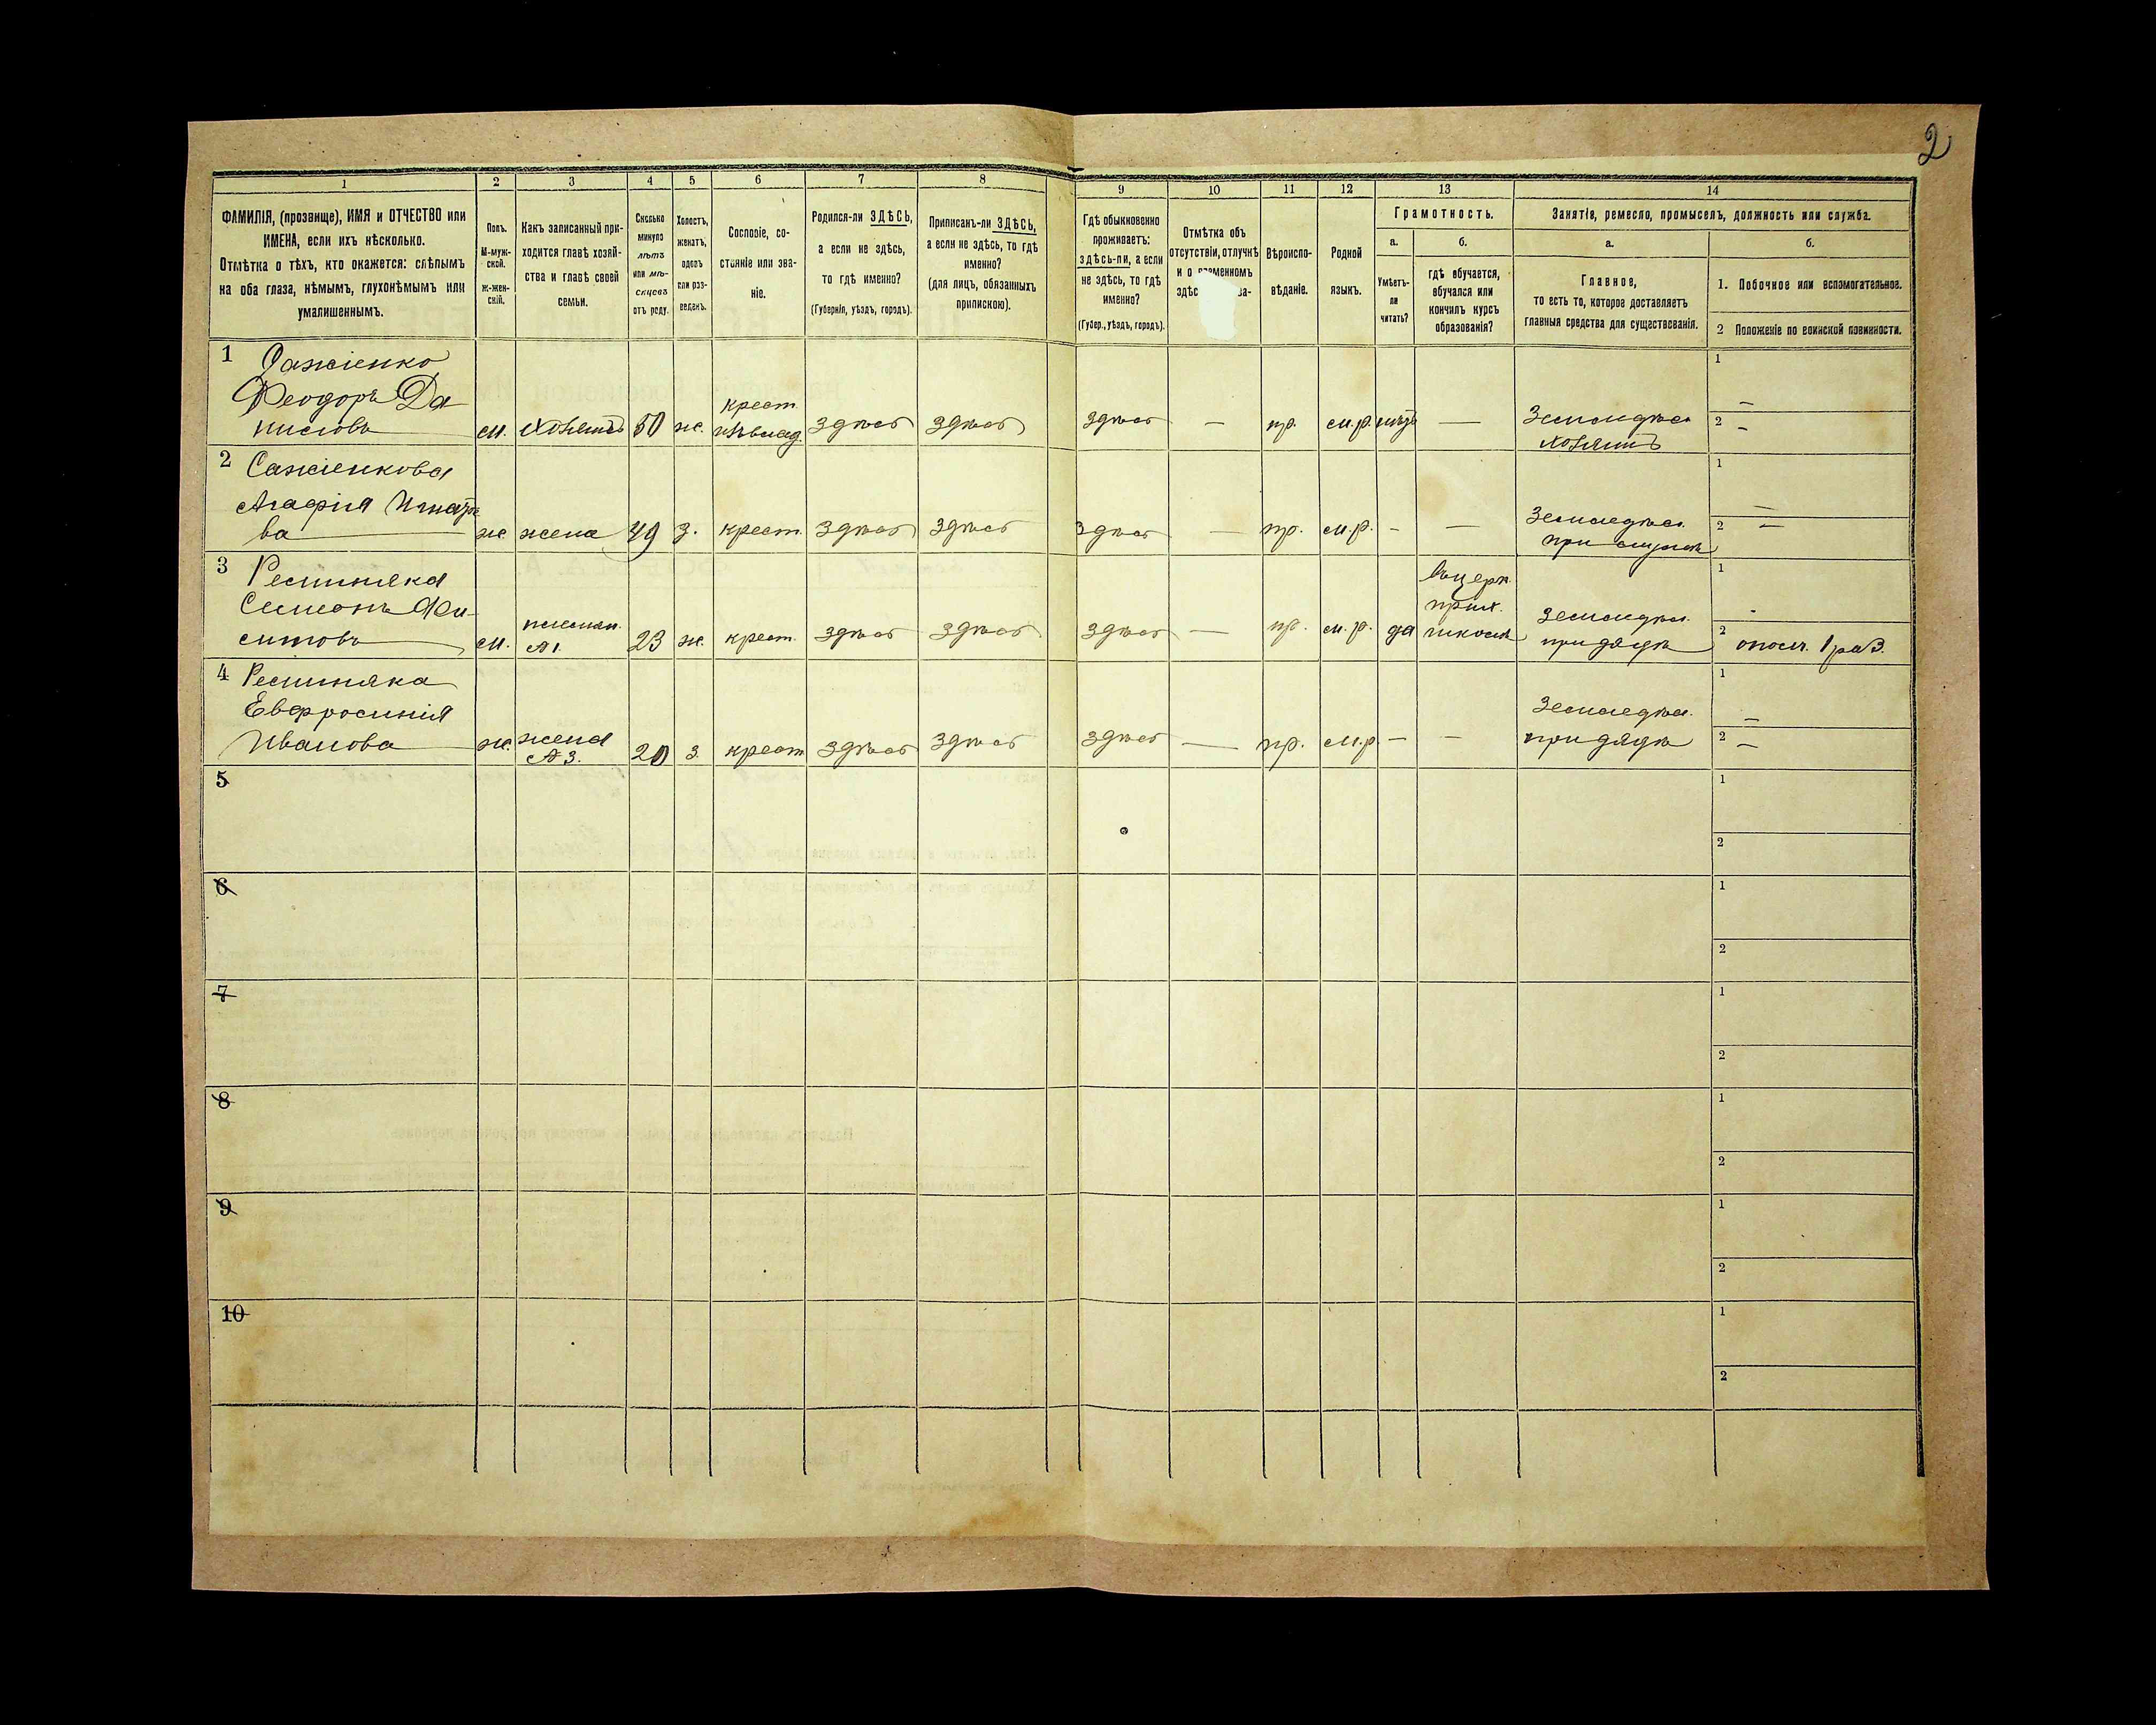 2
1 2 3 4 5 6 7 8 9 10 11 12 13 14
ФАМИЛІЯ, (прозвище), ИМЯ и ОТЧЕСТВО или
ИМЕНА, если ихъ нѣсколько.
Отмѣтка о тѣхъ, кто окажется: слѣпымъ
на оба глаза, нѣмымъ, глухонѣмымъ или
умалишеннымъ.
Полъ.
М-муж-
ской.
ж-жен-
скій.
Какъ записанный при-
ходится главѣ хозяй-
ства и главѣ своей
семьи.
Сколько
минуло
лѣтъ
или мѣ-
сяцевъ
отъ роду.
Холостъ,
женатъ,
вдовъ
или раз-
веденъ.
Сословіе, со-
стояніе или зва-
ніе.
Родился-ли ЗДѢСЬ,
а если не здѣсь,
то гдѣ именно?
(Губернія, уѣздъ, городъ).
Приписанъ-ли ЗДѢСЬ,
а если не здѣсь, то гдѣ
именно?
(для лицъ, обязанныхъ
припискою).
Гдѣ обыкновенно
проживаетъ:
здѣсь-ли, а если
не здѣсь, то гдѣ
именно?
(Губер., уѣздъ, городъ).
Отмѣтка объ
отсутствіи, отлучкѣ
и о временномъ
здѣс ва-
Вѣроиспо-
вѣданіе.
Родной
языкъ.
Грамотность.
а.
Умѣетъ-
ли
читать?
б.
гдѣ обучается,
обучался или
кончилъ курсъ
образованія?
Занятіе, ремесло, промыселъ, должность или служба.
а.
Главное,
то есть то, которое доставляетъ
главныя средства для существованія.
б.
1. Побочное или вспомогательное.
2 Положеніе по воинской повинности.
1
Феодоръ Да-
ниловъ
м. хозяинъ 50 ж. крест. здѣсь здѣсь здѣсь — пр. м.р. нѣтъ — Земледѣл. хозяинъ
1 —
2 —
2 Саженкова
Агафія Игнатье
ва
ж жена 49 з. крест. здѣсь здѣсь здѣсь — пр. м.р. - — Земледѣл. при
1 —
2 —
3
Симеонъ
м. племян. №1. 23 ж. крест. здѣсь здѣсь здѣсь — пр. м.р. да въ церк. прих. школѣ Земледѣл. при дядѣ
1 -
2 ополч. 1 раз.
4
Евфросинія
Иванова
ж. жена №3. 20 з. крест здѣсь здѣсь здѣсь — пр. м.р — — Земледѣл. при дядѣ
1 —
2 —
5
1
2
6
1
2
7
1
2
8
1
2
9
1
2
10
1
2